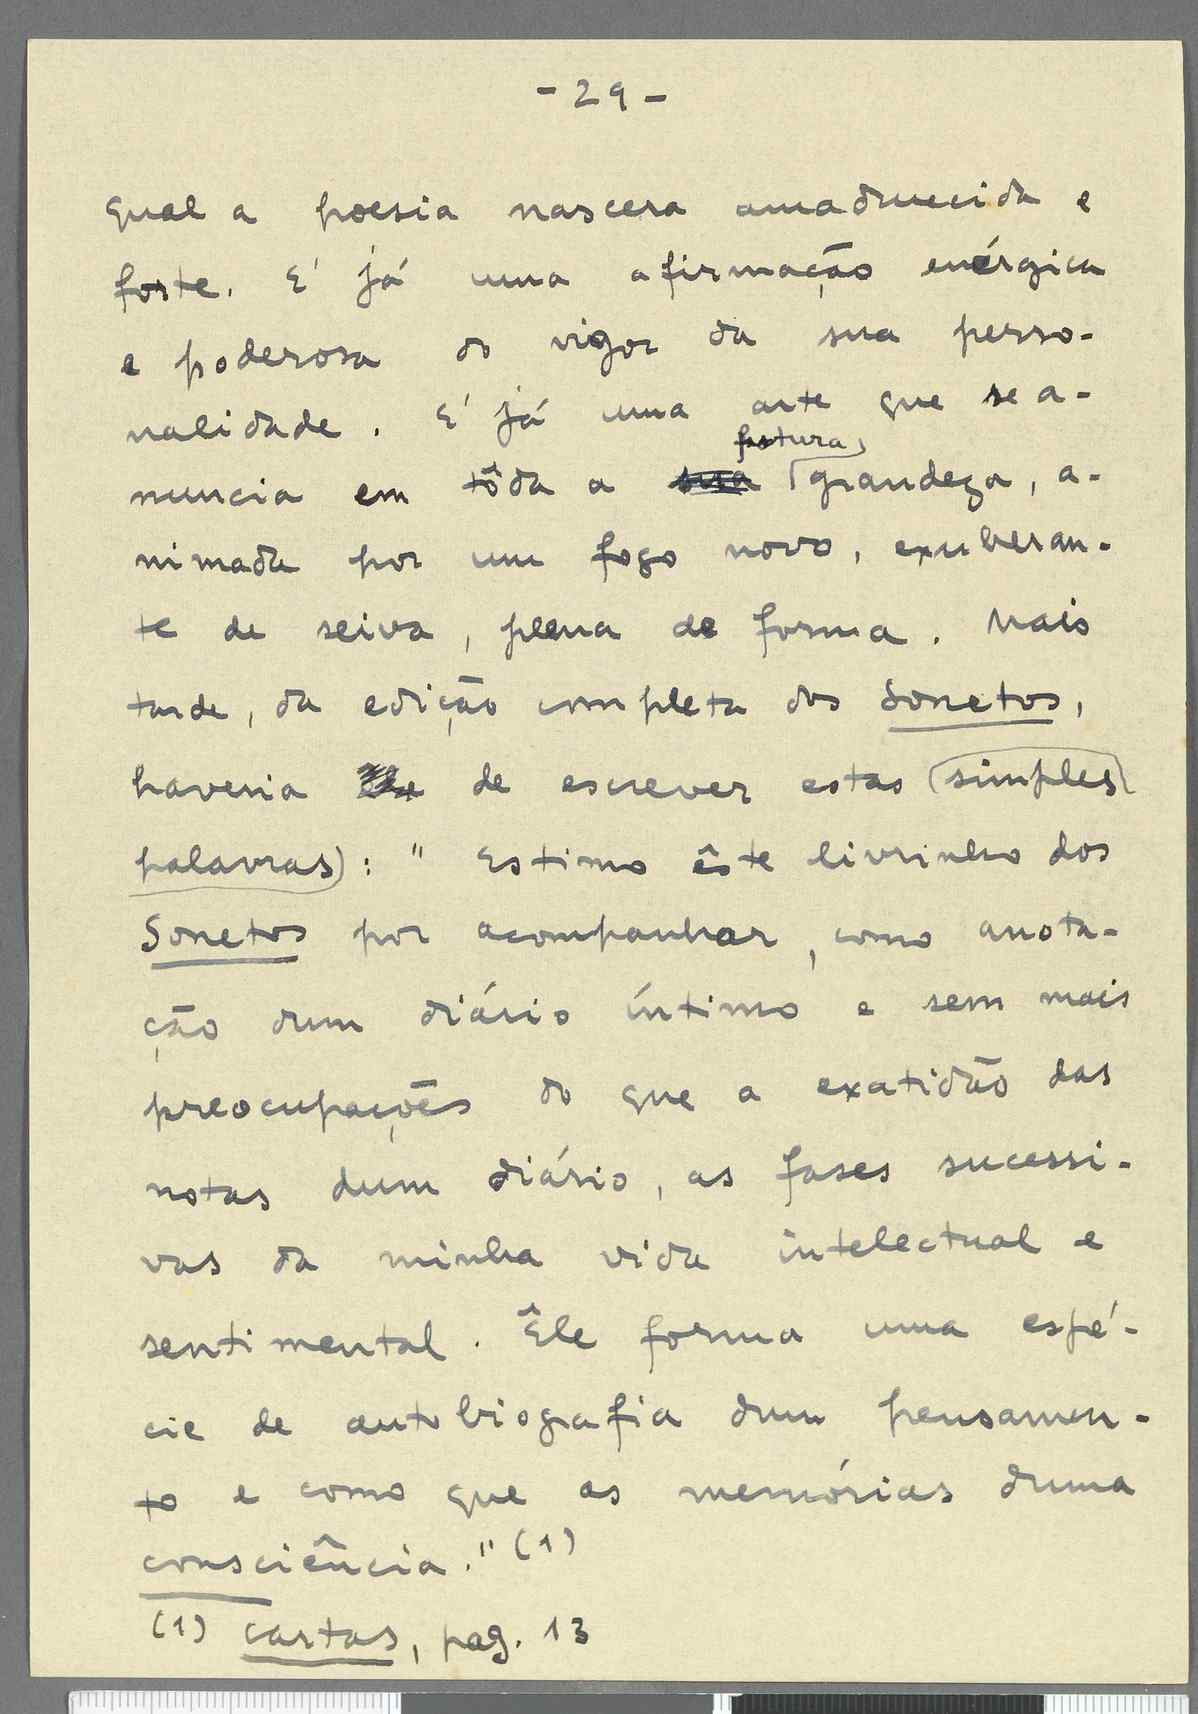 - 29 -
qual a poesia nascera amadurecida e
forte. E' já uma afirmação enérgica
e poderosa do vigor da sua perso-
nalidade. E' já uma arte que se a-
futura
nuncia em tôda a sua grandeza, a-
nimada por um fogo novo, exuberan-
te de seiva, plena de forma. Mais
tarde, da edição completa dos Sonetos,
haveria de escrever estas (simples
palavras): " Estimo êste livrinho dos
Sonetos por acompanhar, como anota-
ção dum diário íntimo e sem mais
preocupações do que a exatidão das
notas dum diário, as fases sucessi-
vas da minha vida intelectual e
sentimental. Êle forma uma espé-
cie de autobiografia dum pensamen-
to e como que as memórias duma
consciência." (1)
(1) Cartas, pag. 13